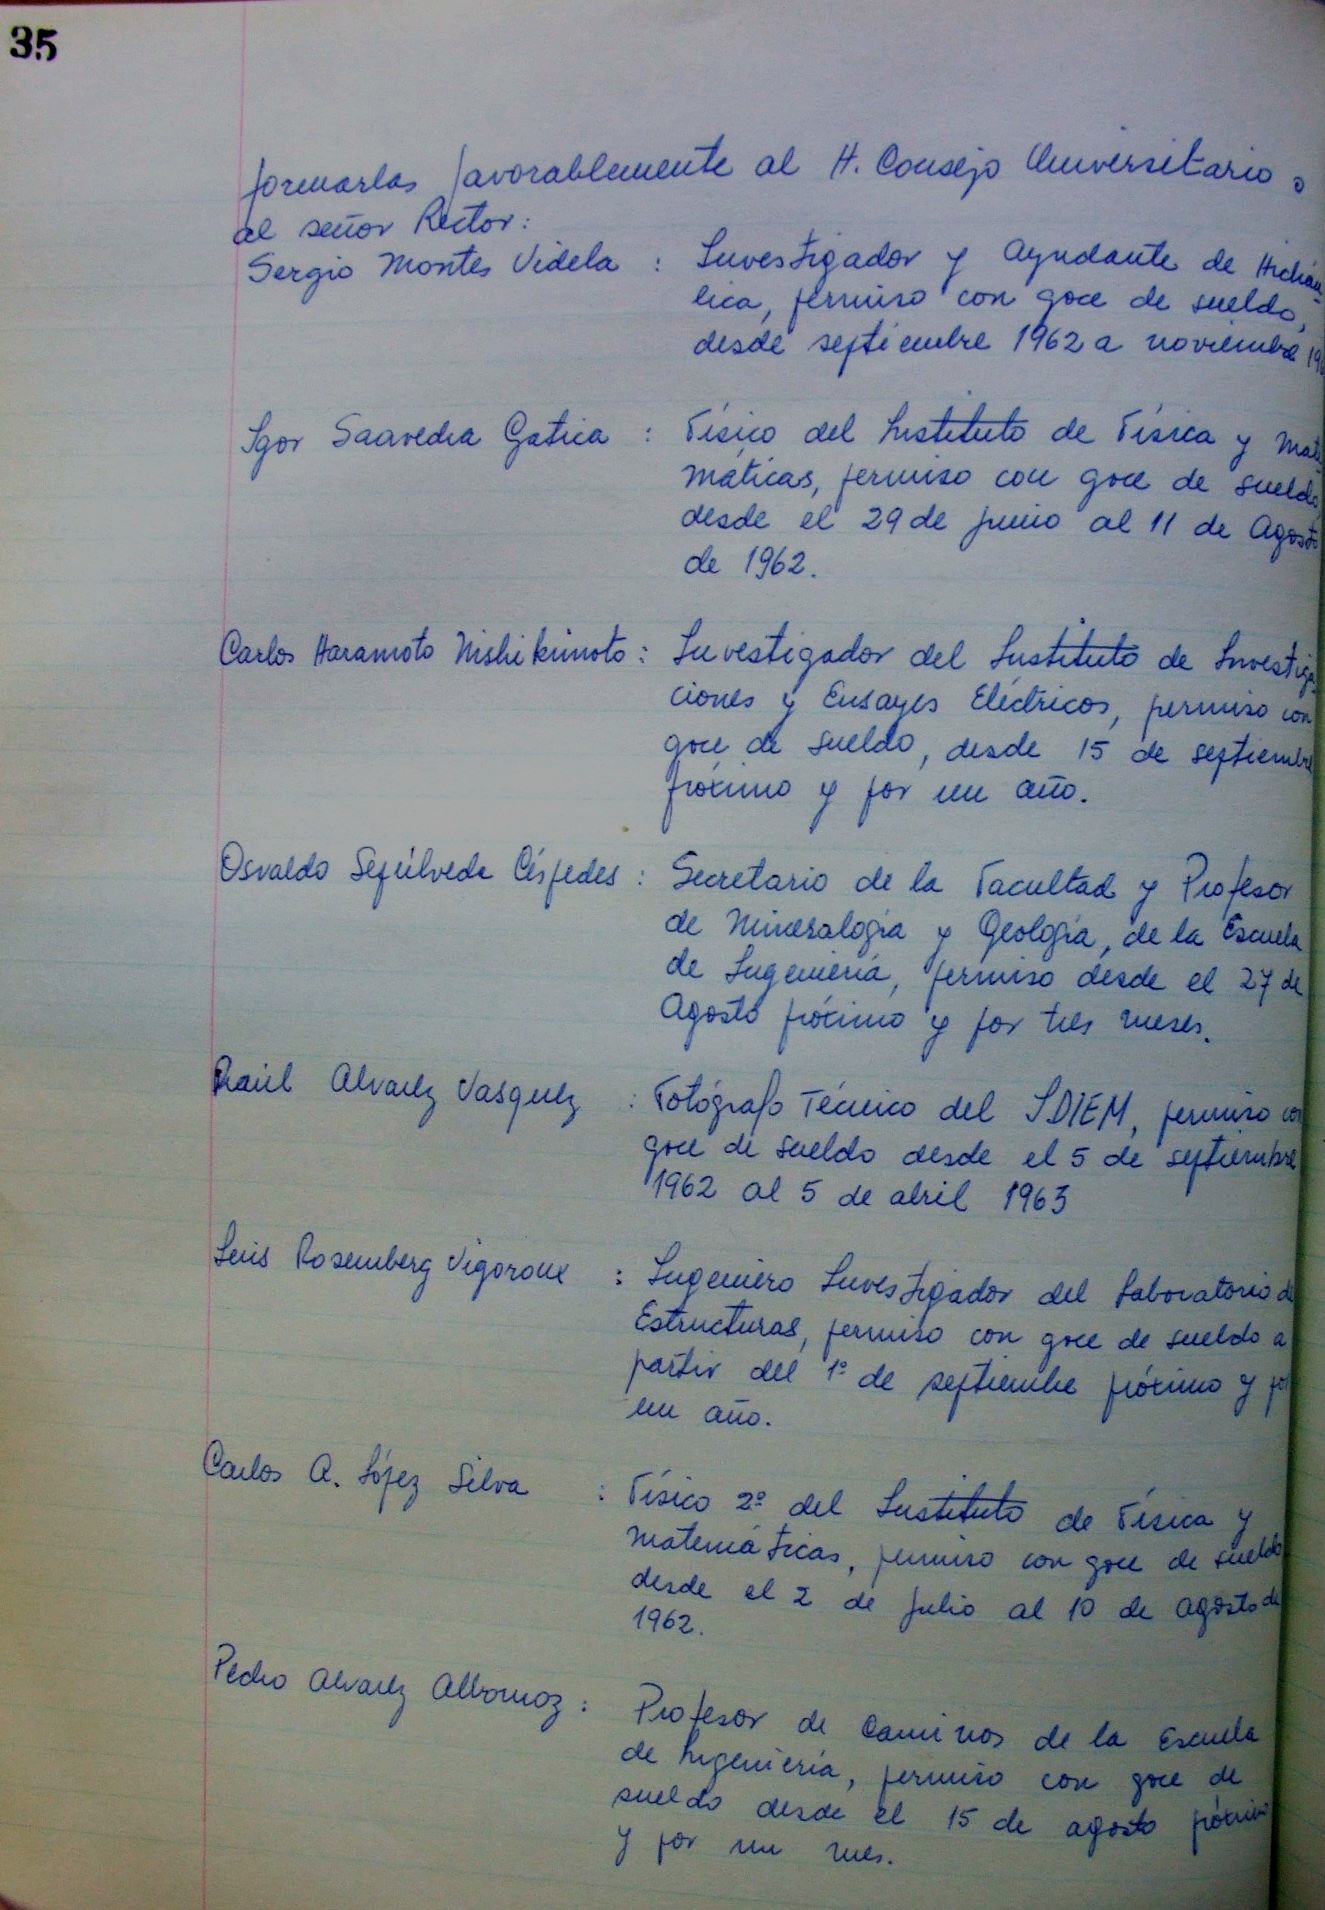 35
formarlas favorablemente al H. Consejo Universitario o
al señor Rector:
Sergio Montes Videla : Investigador y Ayudante de Hidráu-
lica, permiso con goce de sueldo,
desde septiembre 1962 a noviembre
Igor Saavedra Gatica : Físico del Instituto de Física y Mate-
máticas, permiso con goce de sueldo,
desde el 29 de junio al 11 de Agosto
de 1962.
Carlos Haramoto Nishikimoto : Investigador del Instituto de Investiga-
ciones y Ensayes Eléctricos, permiso con
goce de sueldo, desde 15 de septiembre
próximo y por un año.
Osvaldo Sepúlveda Céspedes : Secretario de la Facultad y Profesor
de Mineralogía y Geología, de la Escuela
de Ingeniería, permiso desde el 27 de
Agosto próximo y por tres meses.
Raúl Alvarez Vasquez : Fotógrafo Técnico del IDIEM, permiso con
goce de sueldo desde el 5 de septiembre
1962 al 5 de abril 1963
Luis Rosemberg Vigoroux : Ingeniero Investigador del Laboratorio de
Estructuras, permiso con goce de sueldo a
partir del 1º de septiembre próximo y por
un año.
Carlos A. López Silva : Físico 2º del Instituto de Física y
Matemáticas, permiso con goce de sueldo
desde el 2 de julio al 10 de agosto de
1962.
Pedro Alvarez Albornoz : Profesor de Caminos de la Escuela
de Ingeniería, permiso con goce de
sueldo desde el 15 de agosto próximo
y por un mes.